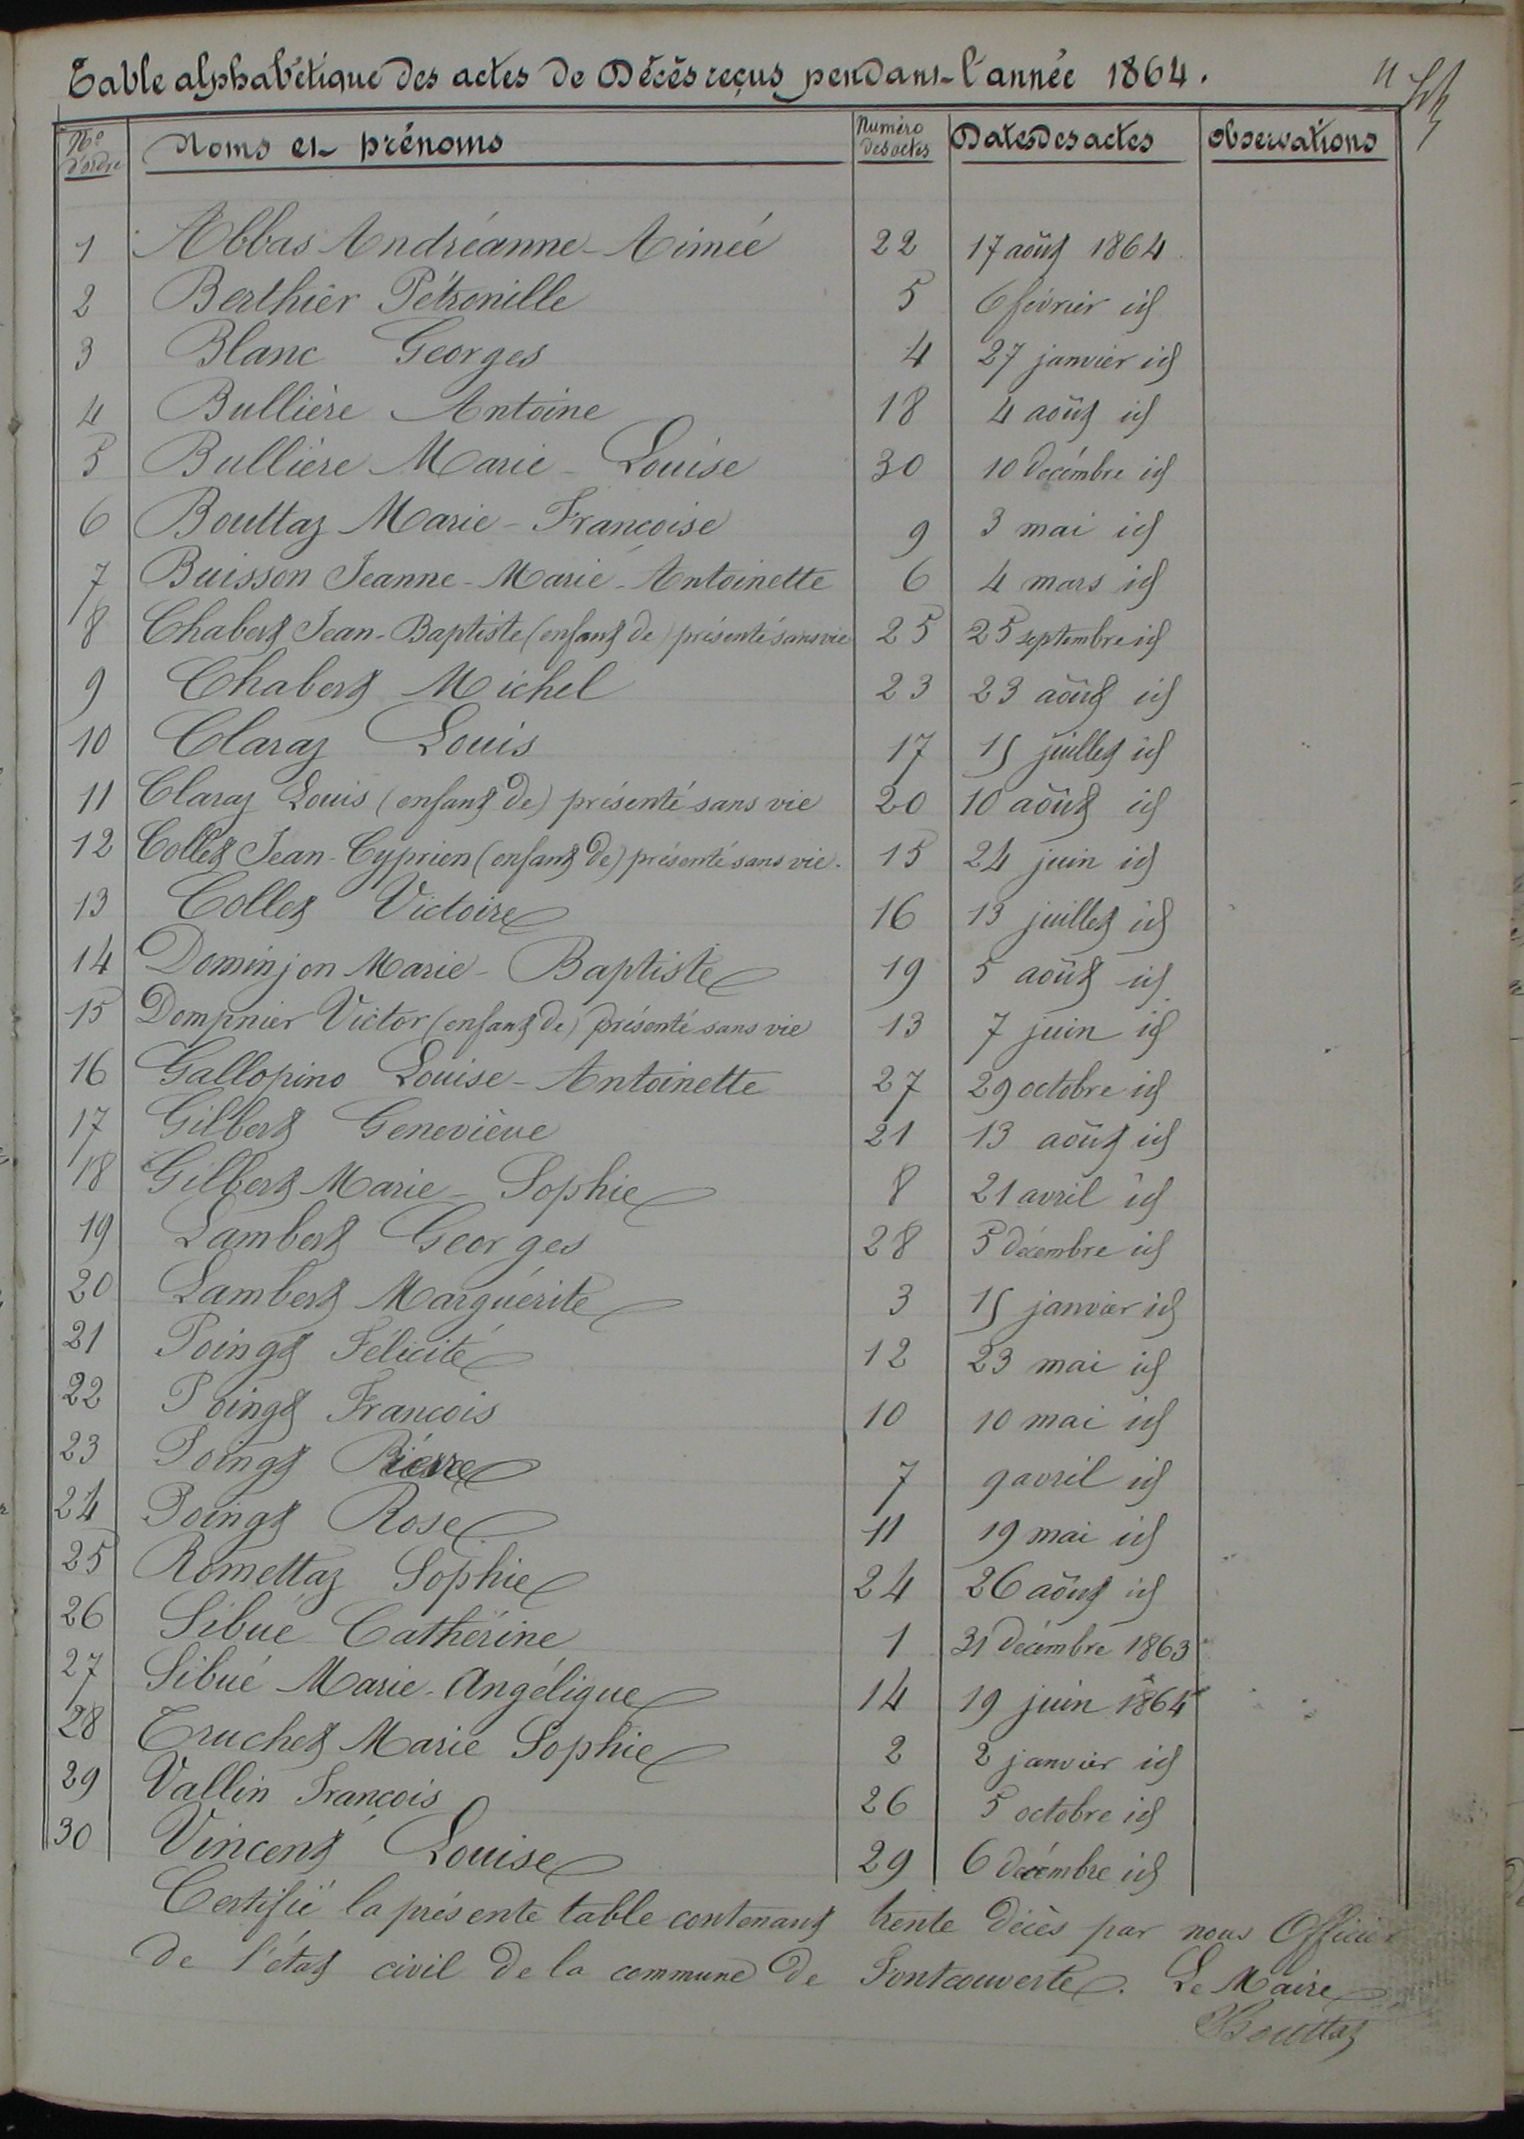 Table alphabétique des actes de Décès reçus pendant l'année 1864.
11
No d'ordre Noms et prénoms Numéro des actes Dates des actes Observations
1 Abbas Andréanne-Aimée 22 17 août 1864
2 Berthier Pétronille 5 6 février id
3 Blanc Georges 4 27 janvier id
4 Bullière Antoine 18 4 août id
5 Bullière Marie-Louise 30 10 décembre id
6 Bouttaz Marie-Françoise 9 3 mai id
7 Buisson Jeanne-Marie-Antoinette 6 4 mars id
8 Chabert Jean-Baptiste (enfant de) présenté sans vie 25 25 septembre id
9 Chabert Michel 23 23 août id
10 Claraz Louis 17 15 juillet id
11 Claraz Louis (enfant de) présenté sans vie 20 10 août id
12 Collet Jean-Cyprien (enfant de) présenté sans vie. 15 24 juin id
13 Collet Victoire 16 13 juillet id
14 Dominjon Marie-Baptiste 19 5 août id
15 Dompnier Victor (enfant de) présenté sans vie 13 7 juin id
16 Gallopino Louise-Antoinette 27 29 octobre id
17 Gilbert Geneviève 21 13 août id
18 Gilbert Marie-Sophie 8 21 avril id
19 Lambert Georges 28 5 décembre id
20 Lambert Marguérite 3 15 janvier id
21 Poingt Félicité 12 23 mai id
22 Poingt François 10 10 mai id
23 Poingt Pierre 7 9 avril id
24 Poingt Rose 11 19 mai id
25 Romettaz Sophie 24 26 août id
26 Sibué Cathérine 1 31 décembre 1863
27 Sibué Marie-Angélique 14 19 juin 1864
28 Truchet Marie Sophie 2 2 janvier id
29 Vallin François 26 5 octobre id
30 Vincent Louise 29 6 décembre id
Certifié la présente table contenant trente décès par nous Officier
de l'état civil de la commune de Fontcouverte. Le Maire
Bouttaz